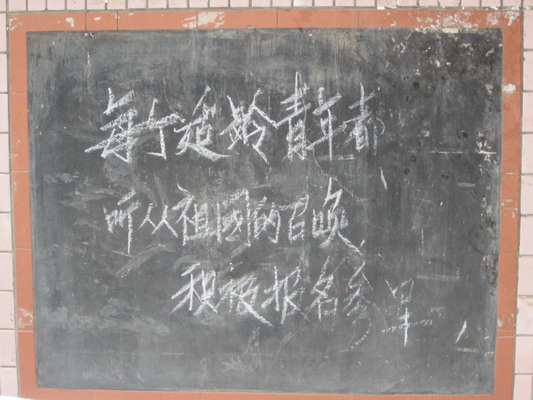 每个适龄青年都
听从祖國的召唤
积极报名参军